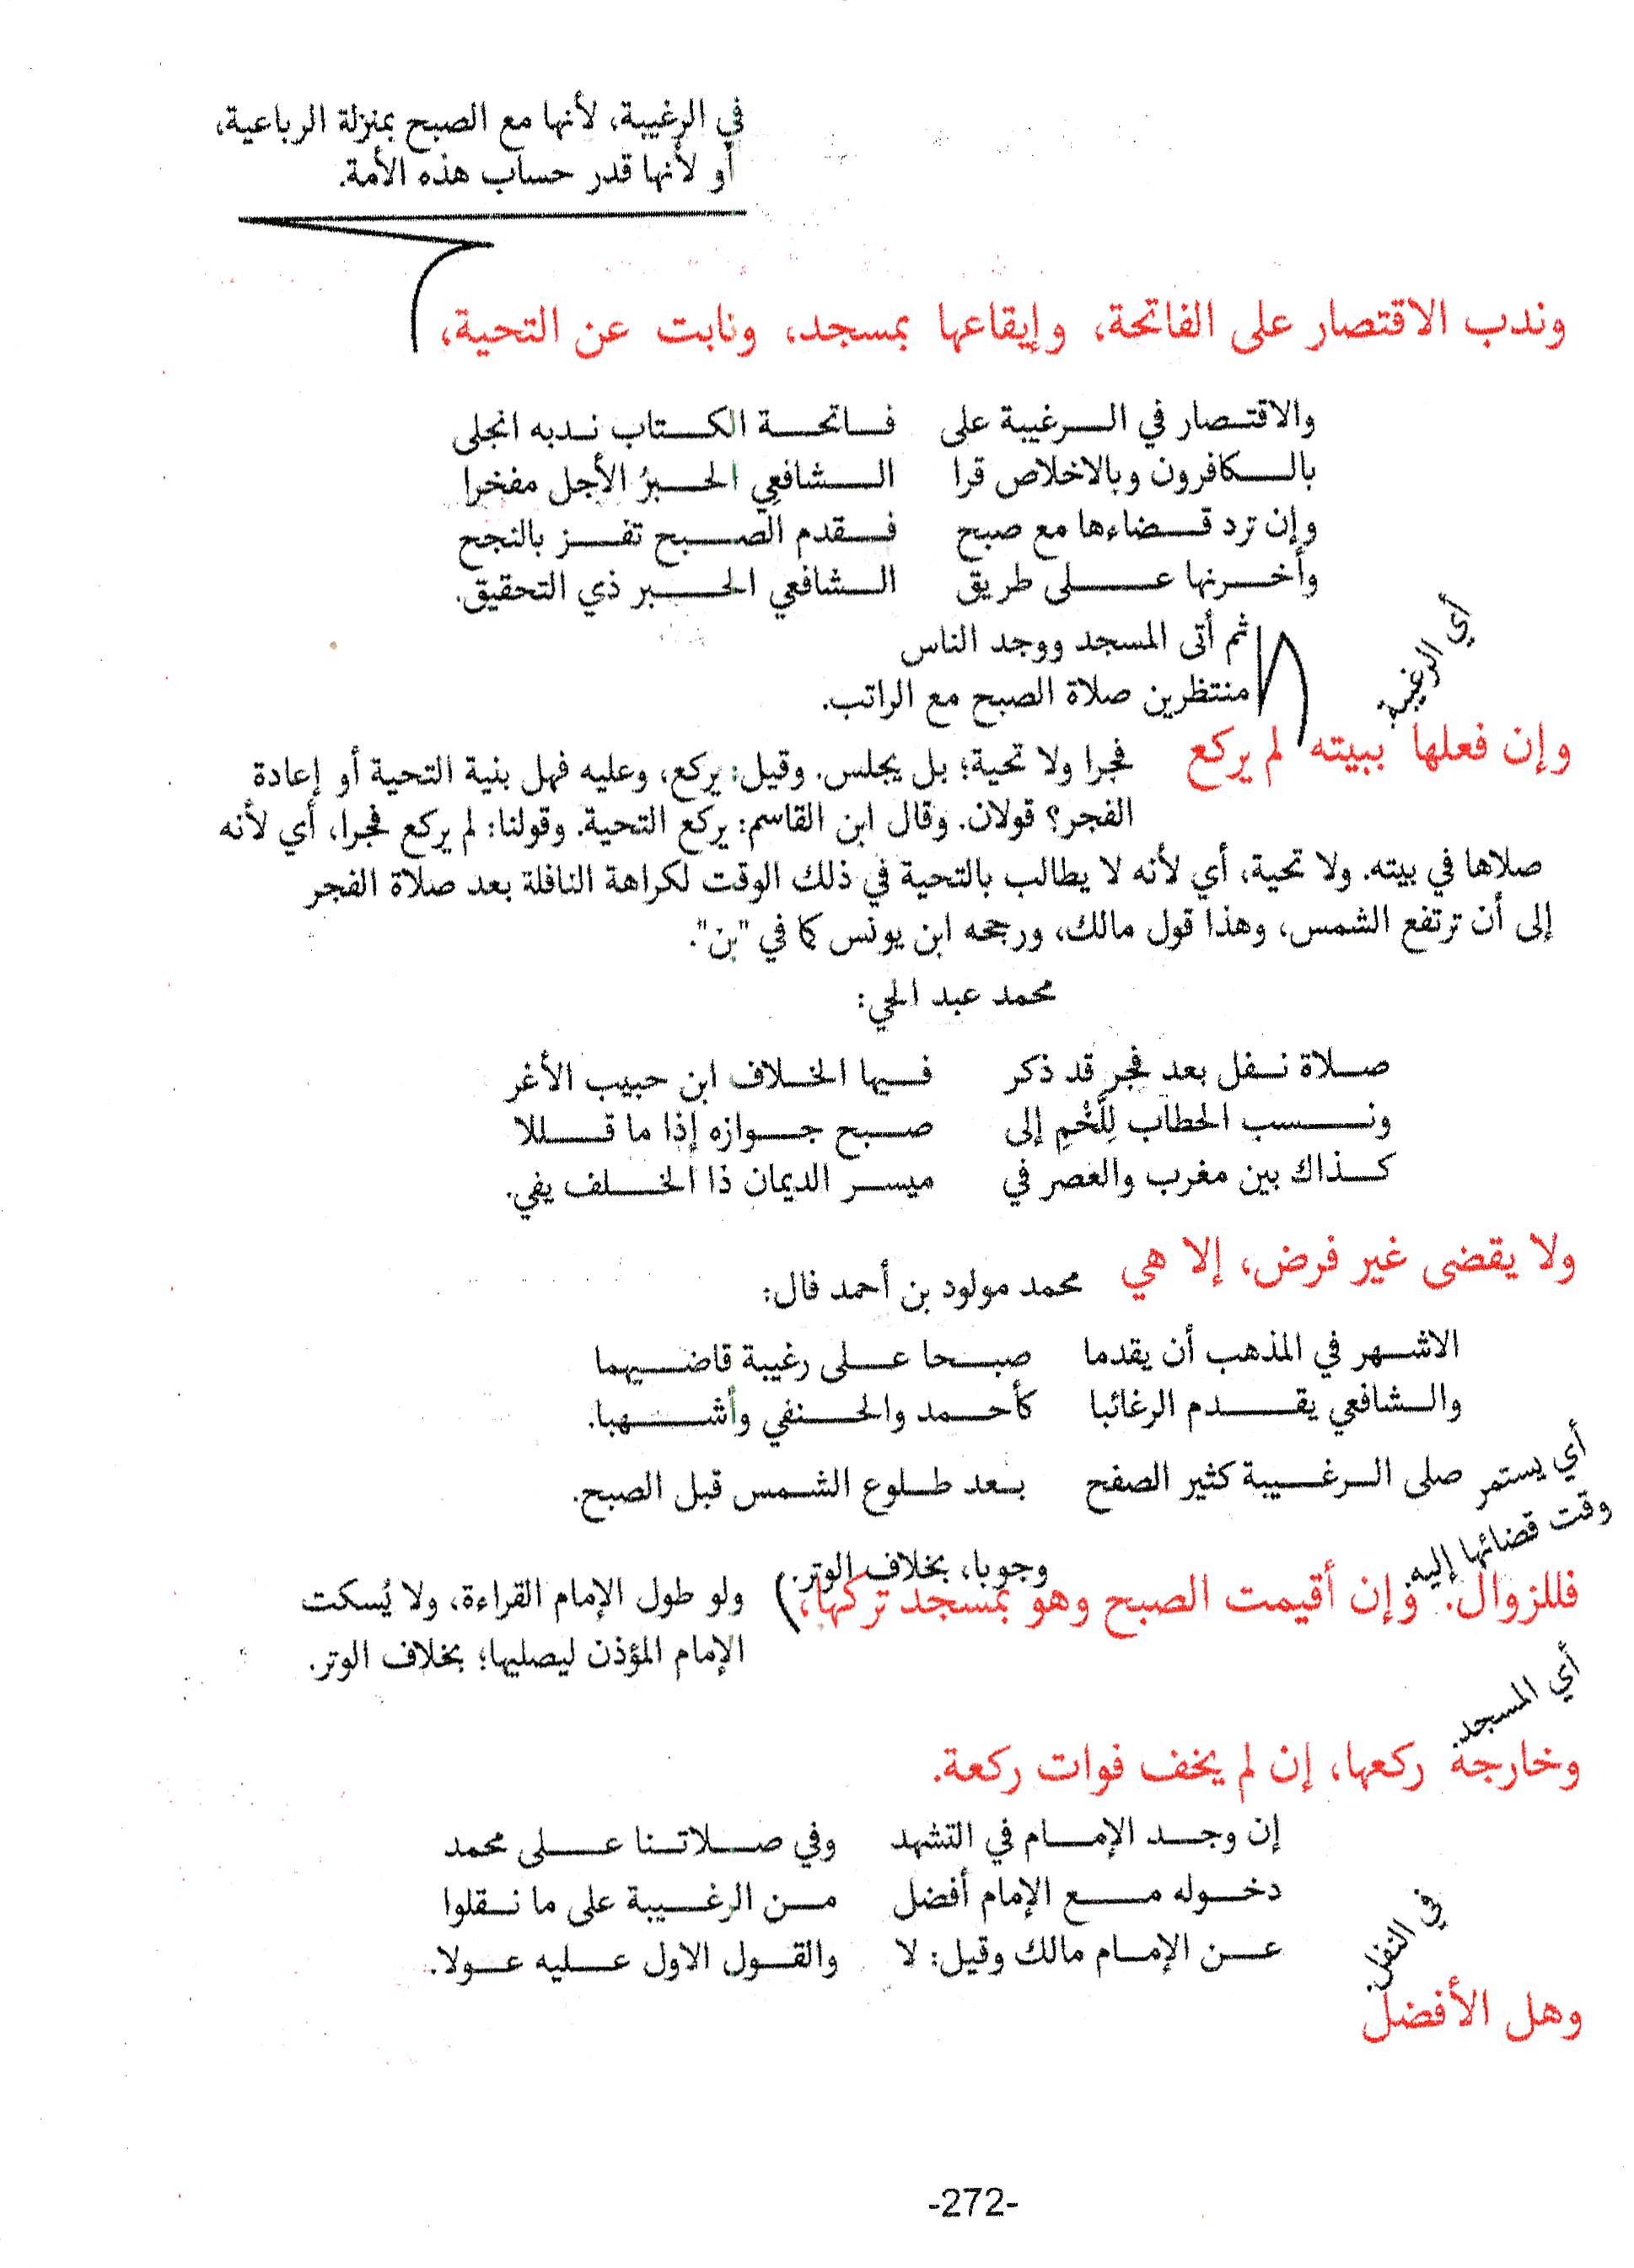 في الرغيبة، لأنها مع الصبح بمنزلة الرباعية،
أو لأنها قدر حساب هذه الأمة.
وندب الاقتصار على الفاتحة، وإيقاعها بمسجد، ونابت عن التحية،
والاقتصار في الرغيبة على فاتحة الكتاب ندبه انجلى
بالكافرون وبالاخلاص قرا الشافعي الحبرُ الأجل مفخرا
وإن ترد قضاءها مع صبح فقدم الصبح تفز بالنجح
وأخرنها على طريق الشافعي الحبر ذي التحقيق.
ثم أتى المسجد ووجد الناس
منتظرين صلاة الصبح مع الراتب.
أي الرغيبة
وإن فعلها ببيته لم يركع فجرا ولا تحية؛ بل يجلس. وقيل: يركع، وعليه فهل بنية التحية أو إعادة
الفجر؟ قولان. وقال ابن القاسم: يركع التحية. وقولنا: لم يركع فجرا، أي لأنه
صلاها في بيته. ولا تحية، أي لأنه لا يطالب بالتحية في ذلك الوقت لكراهة النافلة بعد صلاة الفجر
إلى أن ترتفع الشمس، وهذا قول مالك، ورجحه ابن يونس كما في "بن".
محمد عبد الحي:
صلاة نفل بعد فجر قد ذكر فيها الخلاف ابن حبيب الأغر
ونسب الحطاب لِلَّخْمِ إلى صبح جوازه إذا ما قللا
كذاك بين مغرب والعصر في ميسر الديمان ذا الخلف يفي.
ولا يقضى غير فرض، إلا هي محمد مولود بن أحمد فال:
الاشهر في المذهب أن يقدما صبحا على رغيبة قاضيهما
والشافعي يقدم الرغائبا كأحمد والحنفي وأشهبا.
صلى الرغيبة كثير الصفح بعد طلوع الشمس قبل الصبح.
أي يستمر
وقت قضائها إليه.
وجوبا، بخلاف الوتر.
فللزوال. وإن أقيمت الصبح وهو بمسجد تركها، ولو طول الإمام القراءة، ولا يُسكت
الإمام المؤذن ليصليها؛ بخلاف الوتر.
أي المسجد.
وخارجه ركعها، إن لم يخف فوات ركعة.
إن وجد الإمام في التشهد وفي صلاتنا على محمد
دخوله مع الإمام أفضل من الرغيبة على ما نقلوا
عن الإمام مالك وقيل: لا والقول الاول عليه عولا.
في النفل.
وهل الأفضل
-272-